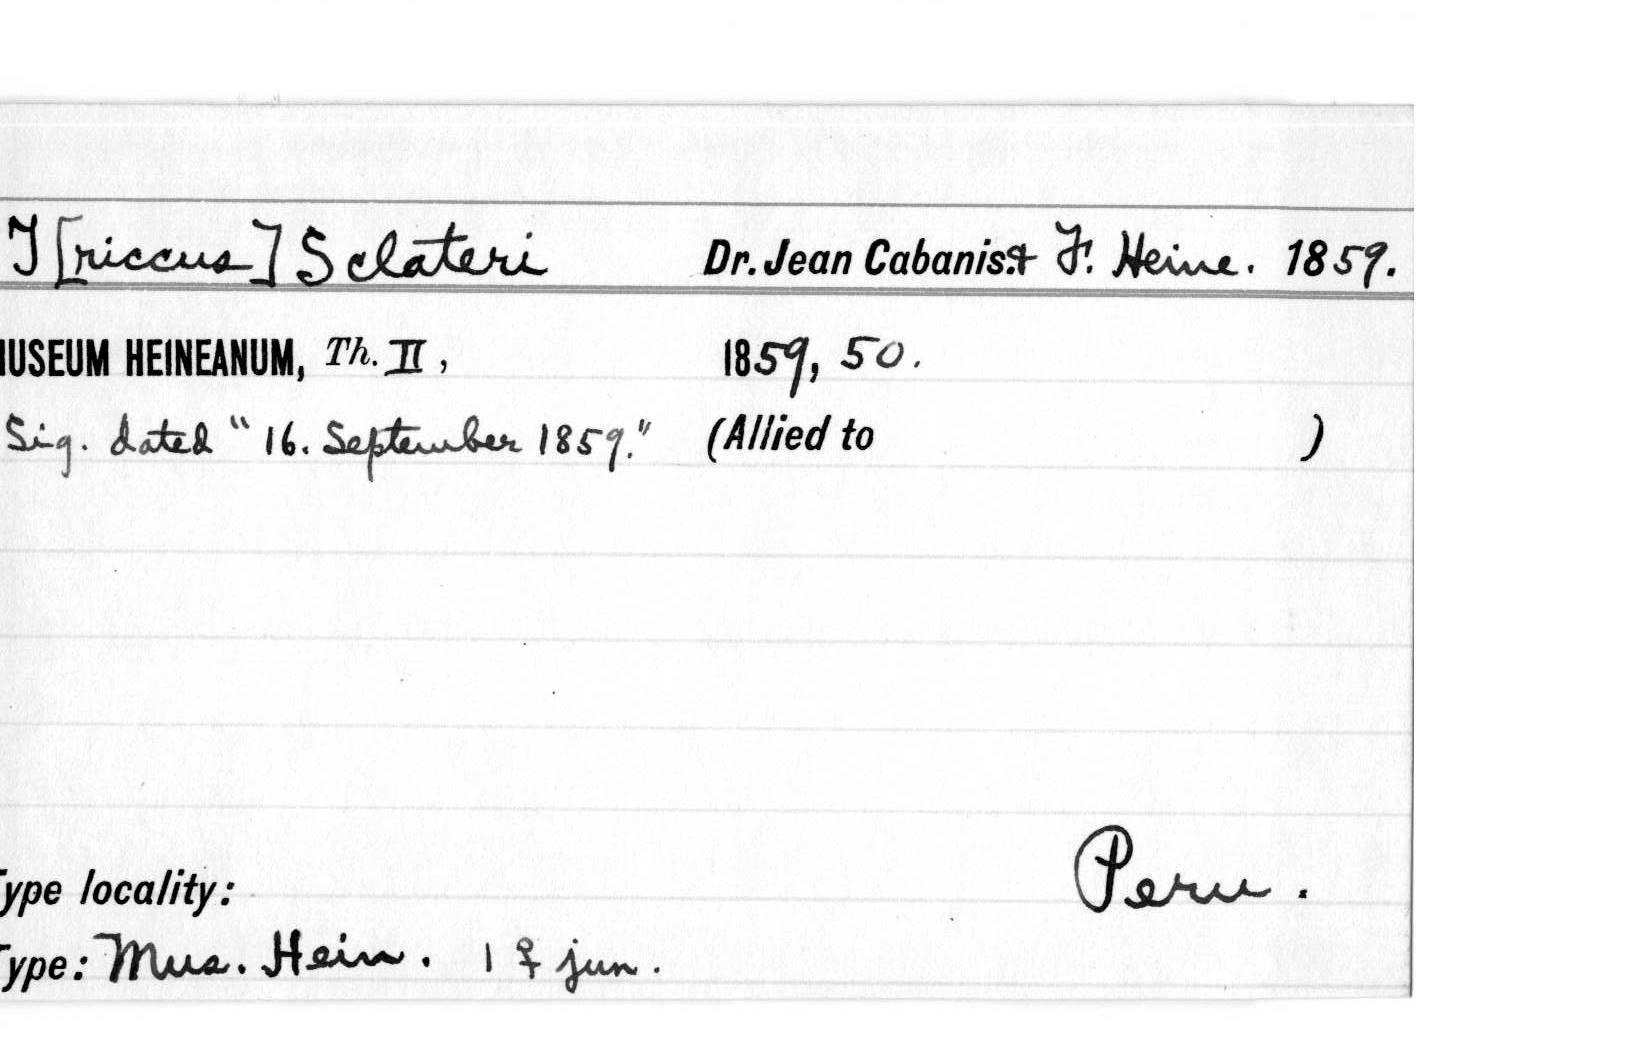 T[riccus] Sclateri Dr. Jean Cabanis & F. Heine. 1859.
MUSEUM HEINEANUM, Th. II, 1859, 50.
Sig. dated "16. September 1859." (Allied to )
Type locality: Peru.
Type: Mus. Hein. 1 ♀ jun.